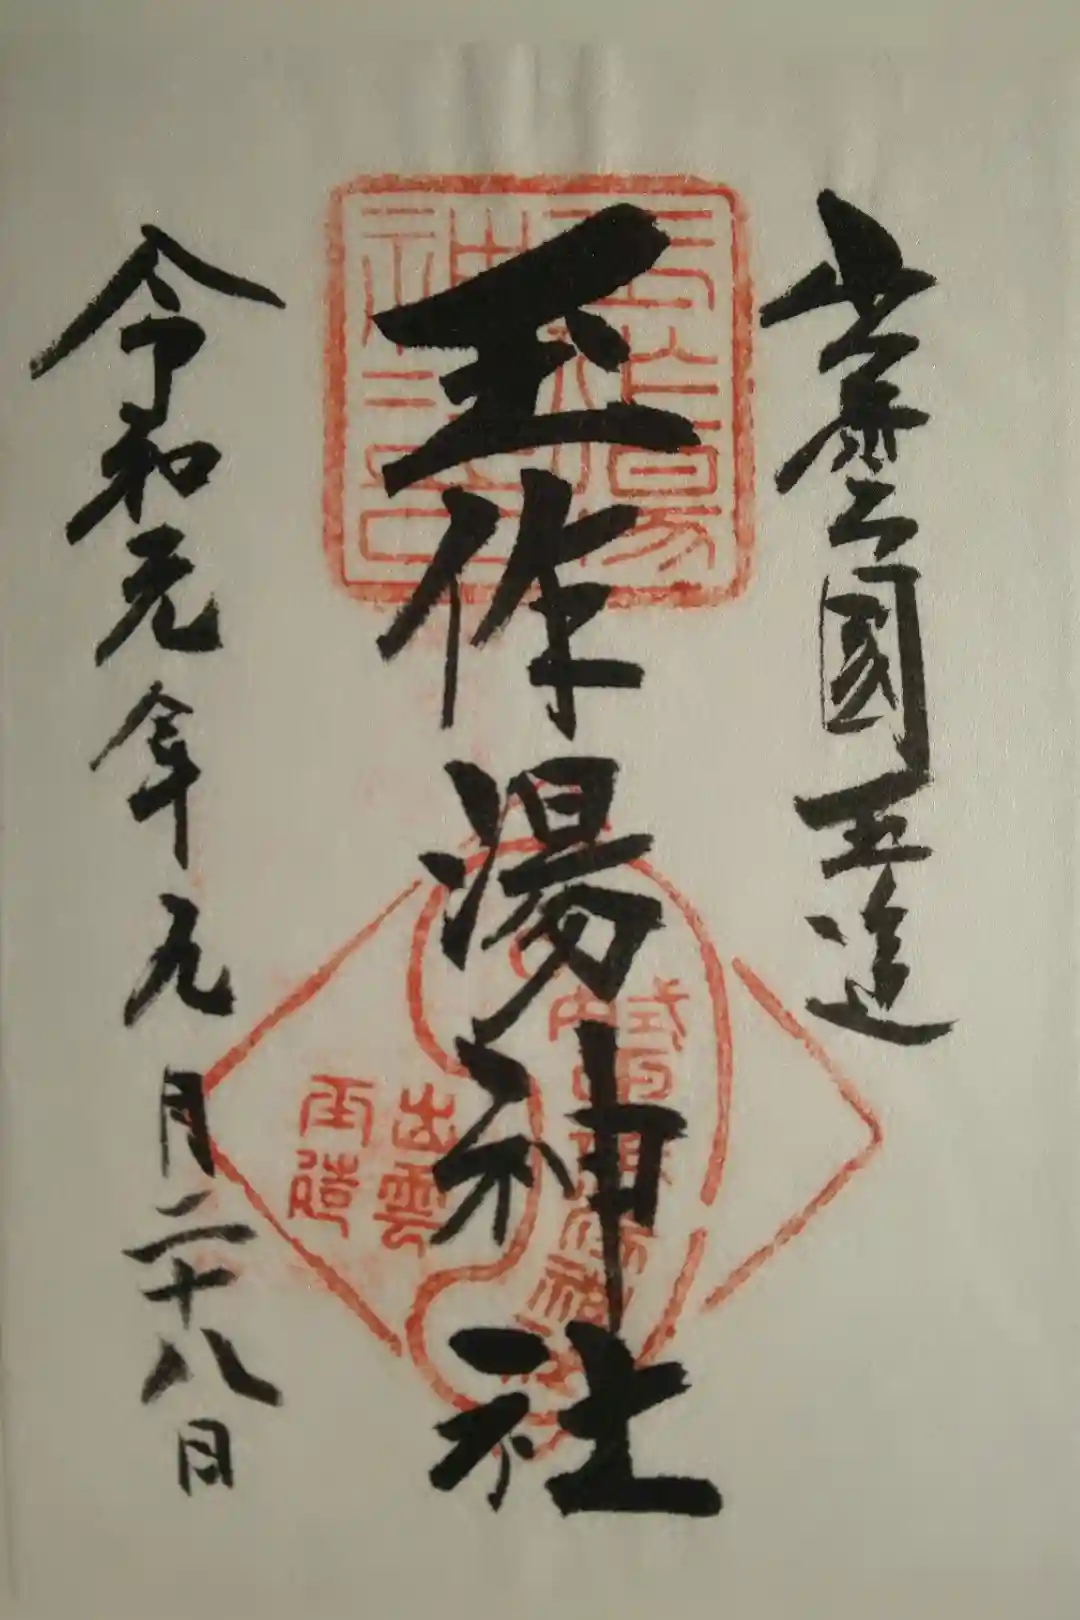 出雲國玉造
玉作湯神社
令和元年九月二十八日
玉作湯
神社之印
式内
出雲
玉造